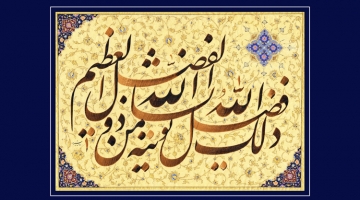 ذلك فضل الله يؤتيه من يشاء والله ذو الفضل العظيم